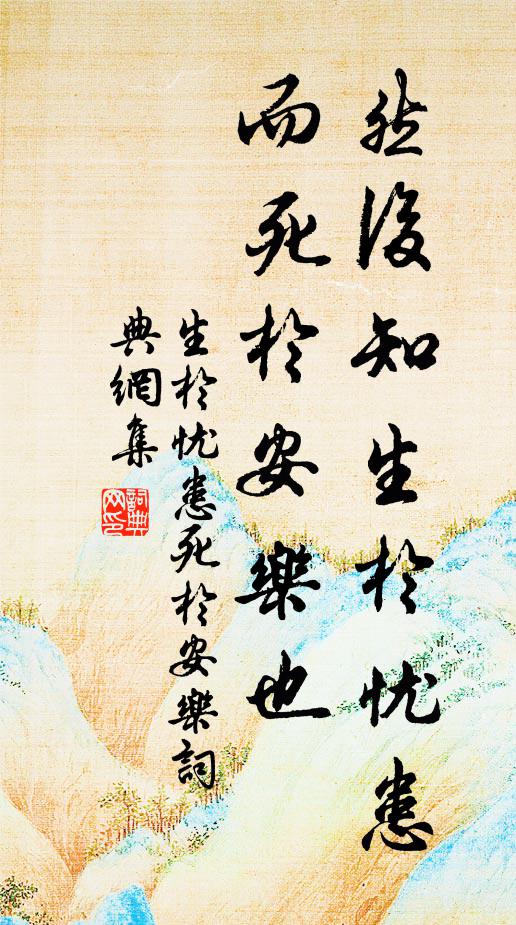 然後知生於忧患
而死於安樂也
生於忧患死於安樂詞
典網集
詞典
网印